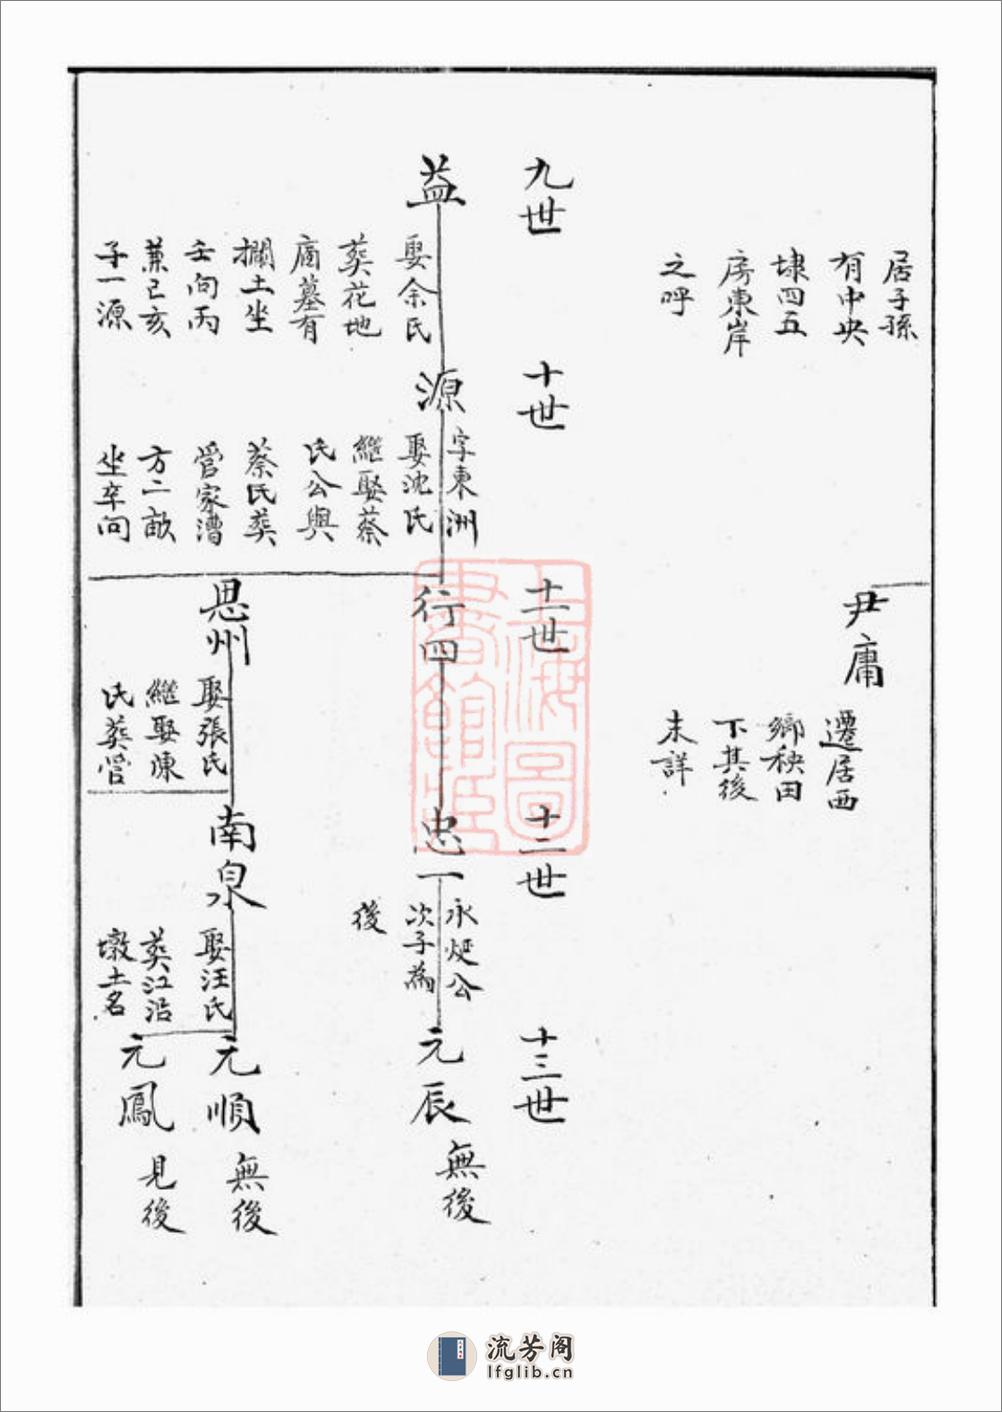 居子孫
有中央
埭四五
房東岸
之呼
尹庸
遷居西
鄉秧田
下其後
未詳
九世
益
娶余氏
葬花地
廟墓有
攔土坐
壬向丙
兼己亥
子一源
十世
源
字東洲
娶沈氏
繼娶蔡
氏公與
蔡氏葬
管家漕
方二畝
坐辛向
十一世
行四
思州
娶張氏
繼娶陳
氏葬管
十二世
忠一
永煃公
次子為
後
南泉
娶汪氏
葬江沿
墩土名
十三世
元辰
無後
元順
無後
元鳳
見後
上海圖
書館藏
流芳阁
lfglib.cn